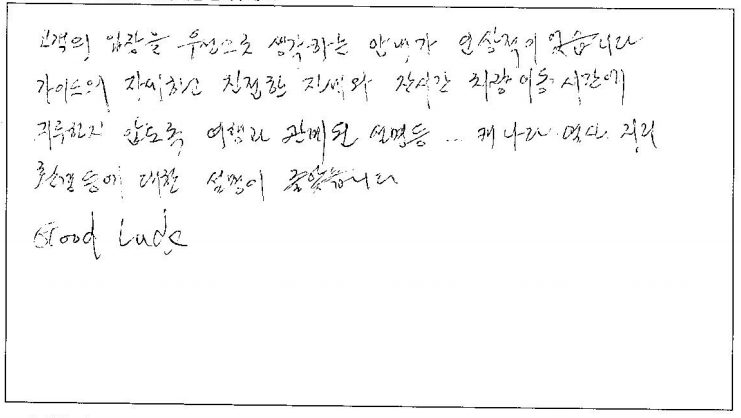 고객의 입장을 우선으로 생각하는 안내가 인상적이었습니다
가이드의 자세하고 친절한 안내와 장시간 차량이동 시간에
지루하지 않도록 여행과 관계된 설명등 ... 캐나다 역사 지리
환경 등에 대한 설명이 좋았습니다
Good Luck